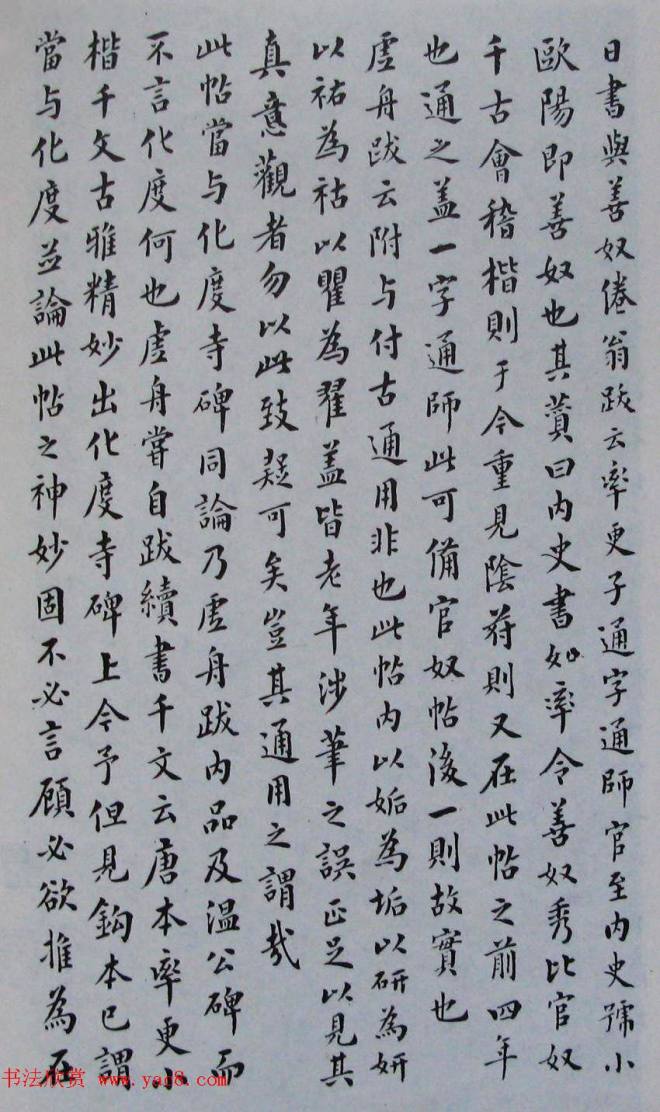 日書與善奴倦翁跋云率更子通字通師官至内史號小
歐陽即善奴也其贊曰内史書如率令善奴秀比官奴
千古會稽楷則于今重見陰符則又在此帖之前四年
也通之盖一字通師此可備官奴帖後一則故實也
虚舟跋云附与付古通用非也此帖内以姤為垢以研為妍
以祐為祜以瞿為翟盖皆老年涉筆之誤正足以見其
真意觀者勿以此致疑可矣豈其通用之謂哉
此帖當与化度寺碑同論乃虚舟跋内品及温公碑而
不言化度何也虚舟嘗自跋續書千文云唐本率更小
楷千文古雅精妙出化度寺碑上今予但見鈎本已謂
當与化度並論此帖之神妙固不必言顧必欲推為在
书法欣赏 www.yac8.com